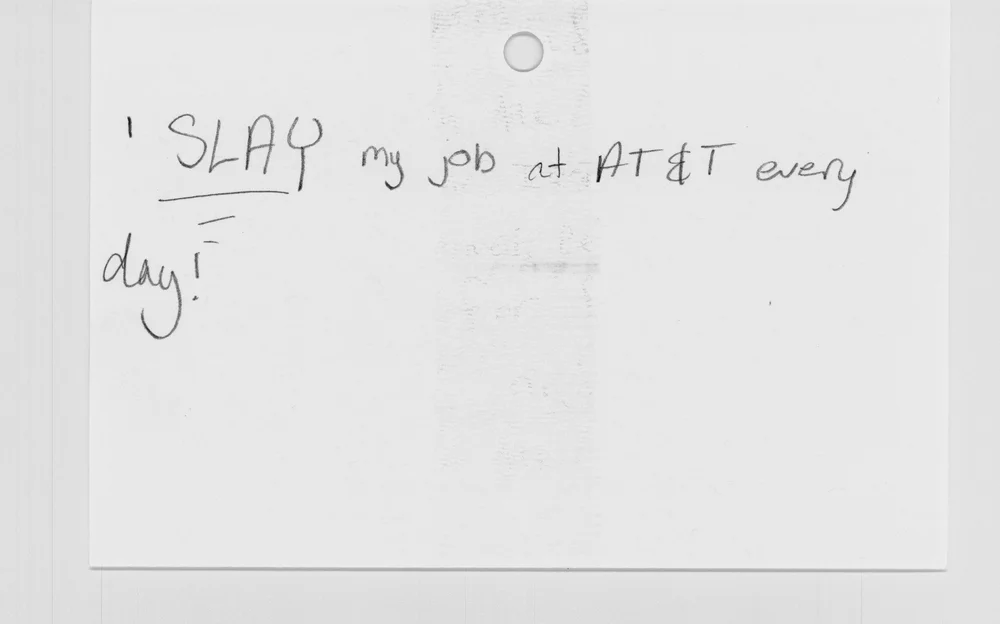 I SLAY my job at AT&T every
day!